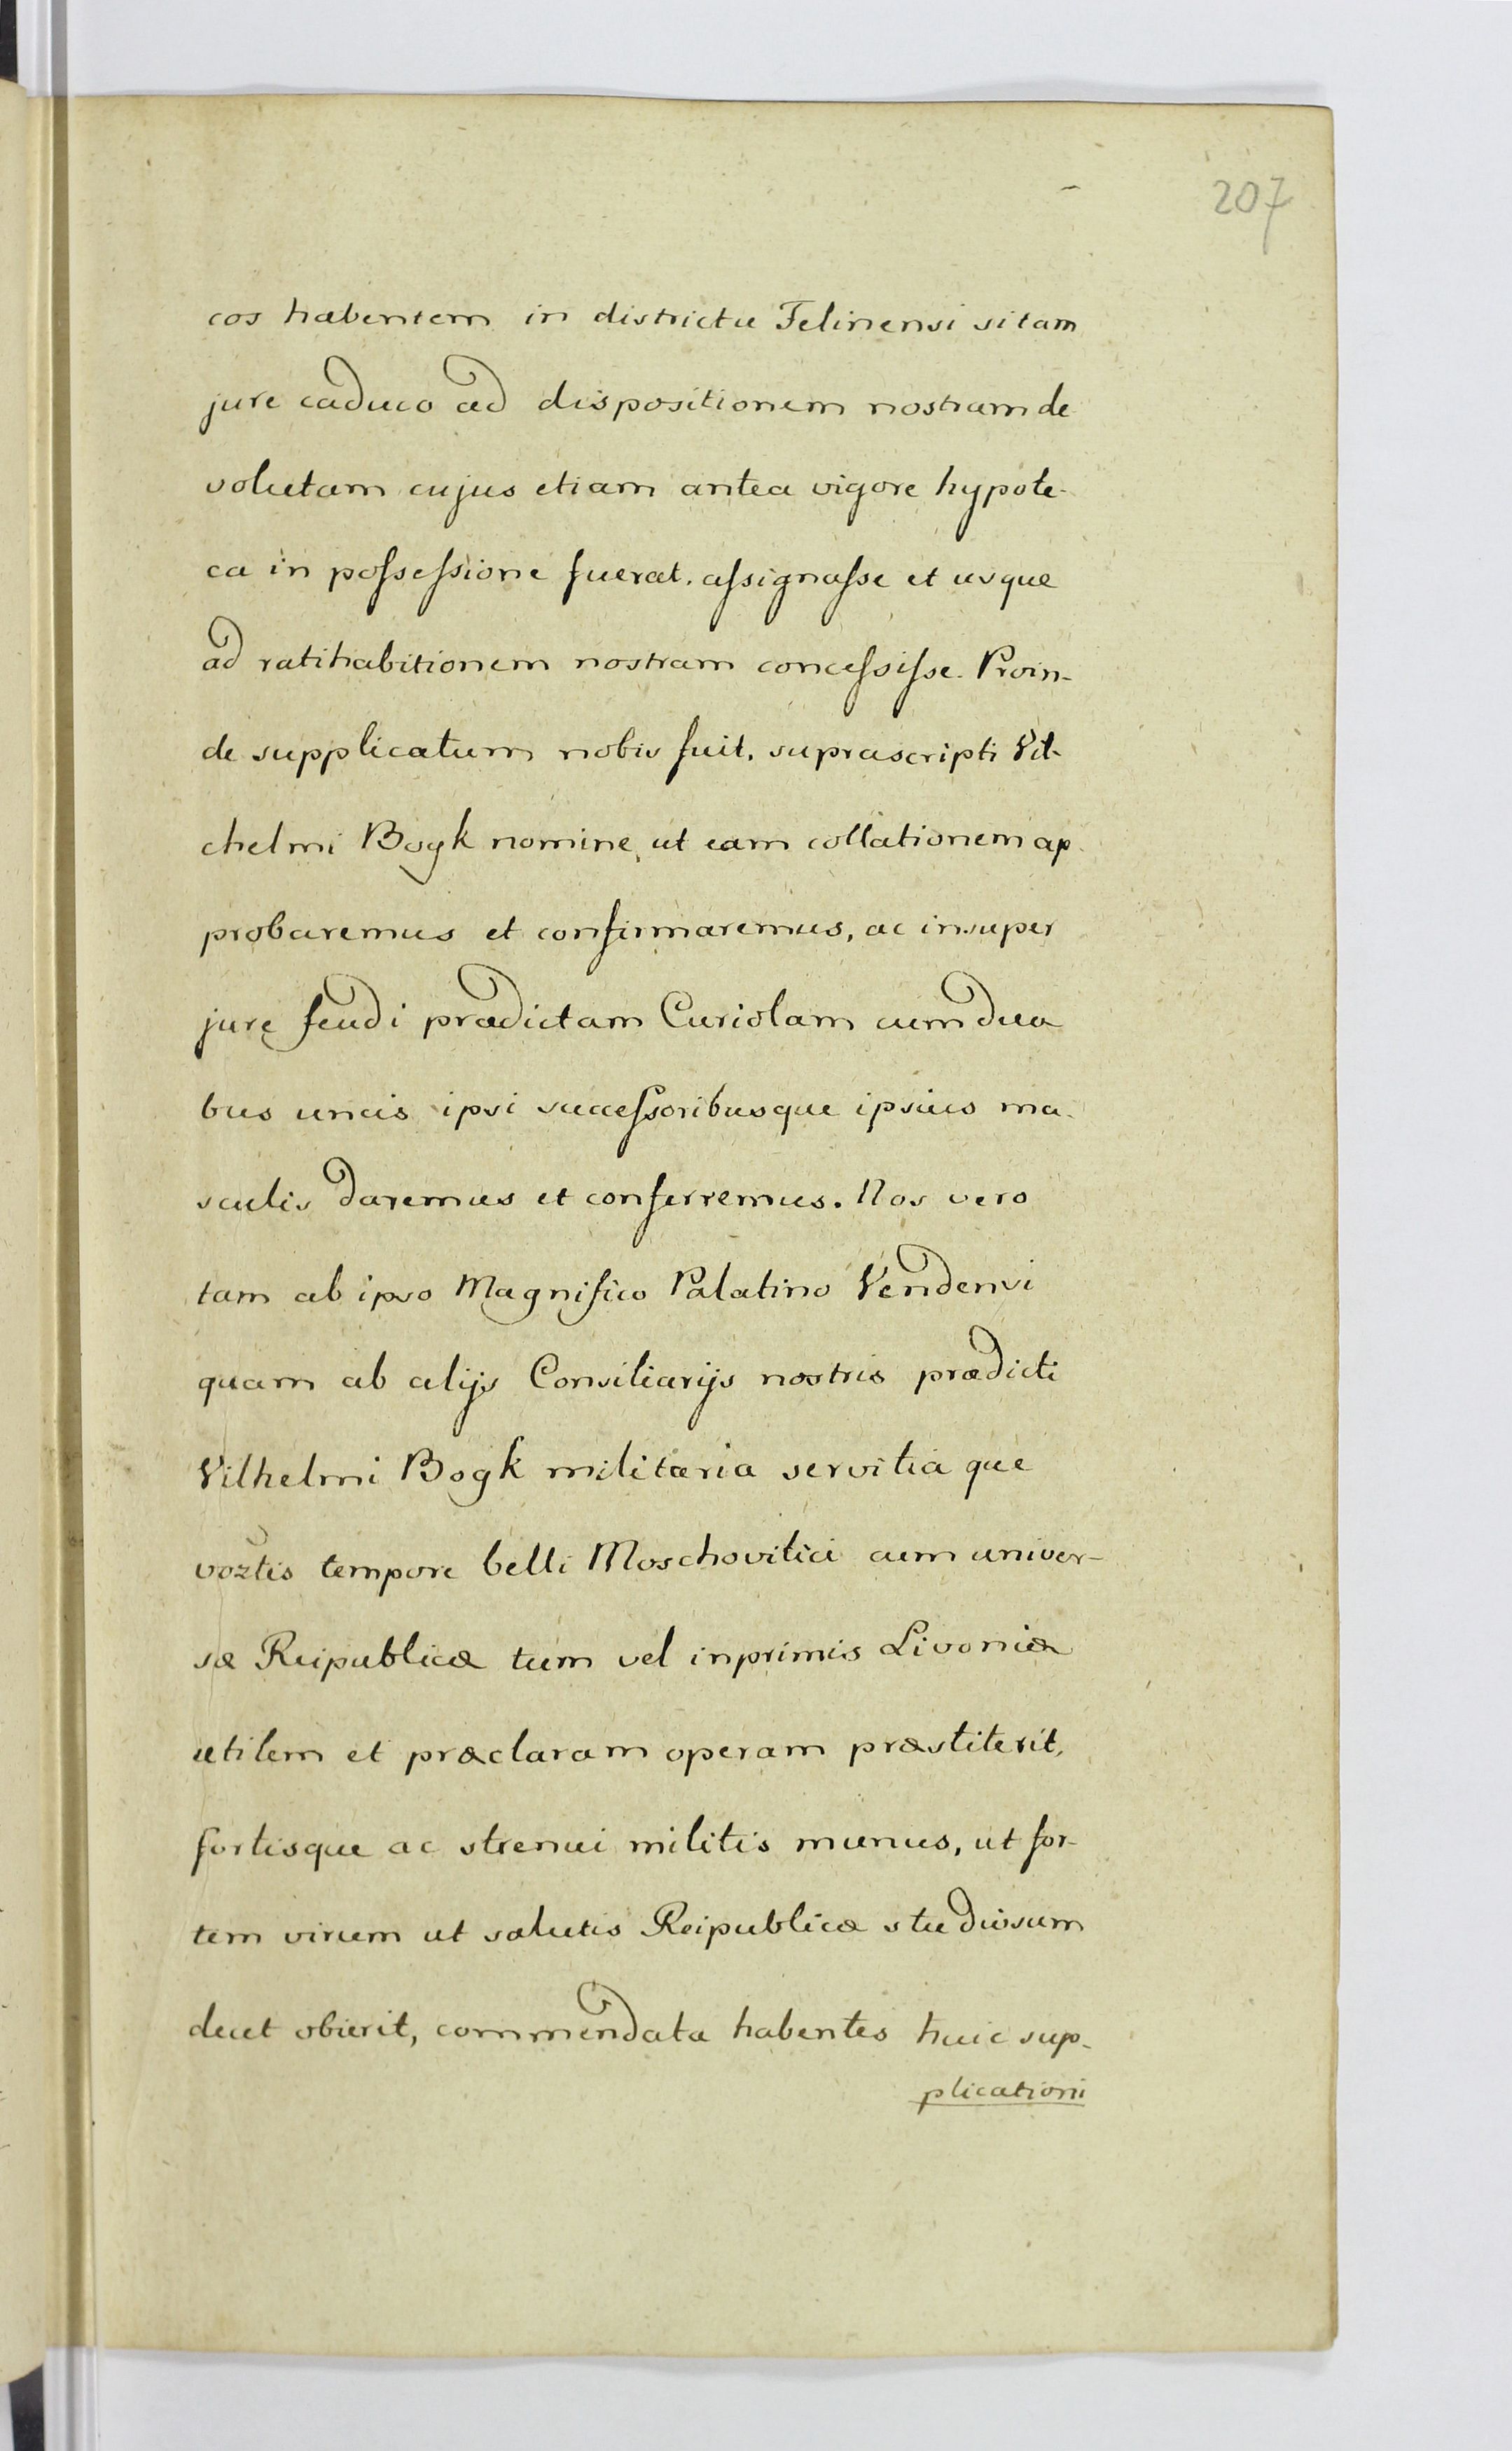 207
cos habentem in districtu Felinensi sitam
jure caduco ad dispositionem nostram de
volutam cujus etiam antea vigore hypote-
ca in possessione fuerat. assignasse et usque
ad ratihabitionem nostram concessisse. Proin-
de supplicatum nobis fuit, suprascripti Vil-
chelmi Bogk nomine, ut eam collationem ap-
probaremus et confirmaremus, ac insuper
jure feudi prædictam Curiolam cum dua
bus uncis ipsi successoribusque ipsius ma-
sculis daremus et conferremus. Nos vero
tam ab ipso Magnifico Palatino Vendensi
quam ab alijs Consiliarijs nostris prædicti
Vilhelmi Bogk militaria servitia que
tempore belli Moschovitici cum univer-
sæ Reipublicæ tum vel inprimis Livoniæ
utilem et præclaram operam præstiterit,
fortisque ac strenui militis munus, ut for-
tem virum ut salutis Reipublicæ studiosum
decet obierit, commendata habentes huic sup-
plicationi